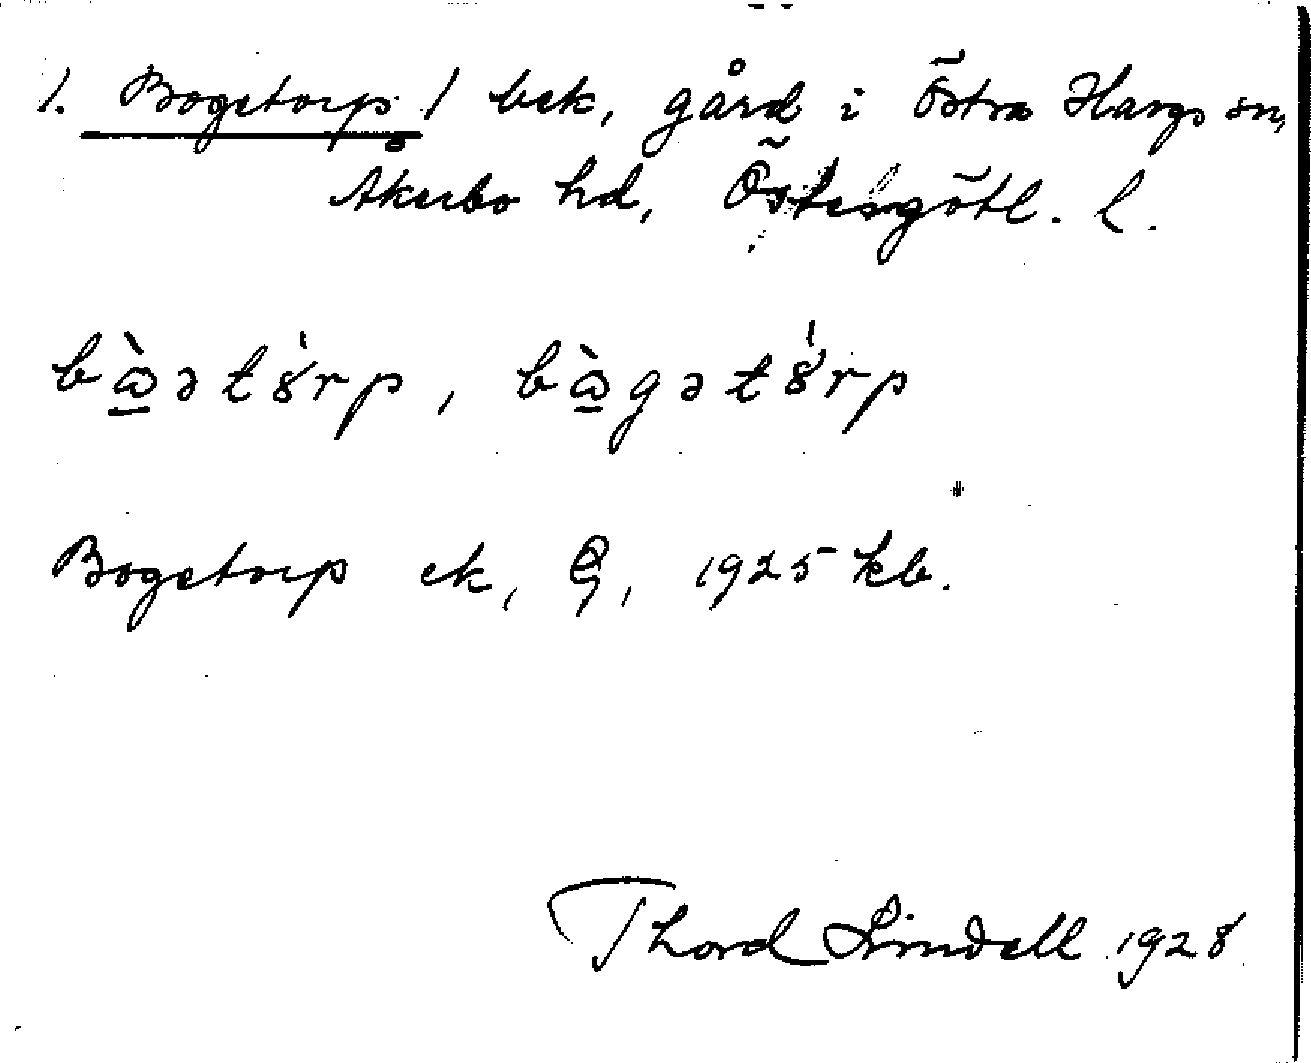 1. Bogetorp / bek, gård i Östra Hargs sn,
Åkerbo hd, Östergötl. l.
bɷ̀ətȣ́rp, bɷ̀gətȣ́rp
Bogetorp ek, 1925 kb.
Thord Lindell 1928